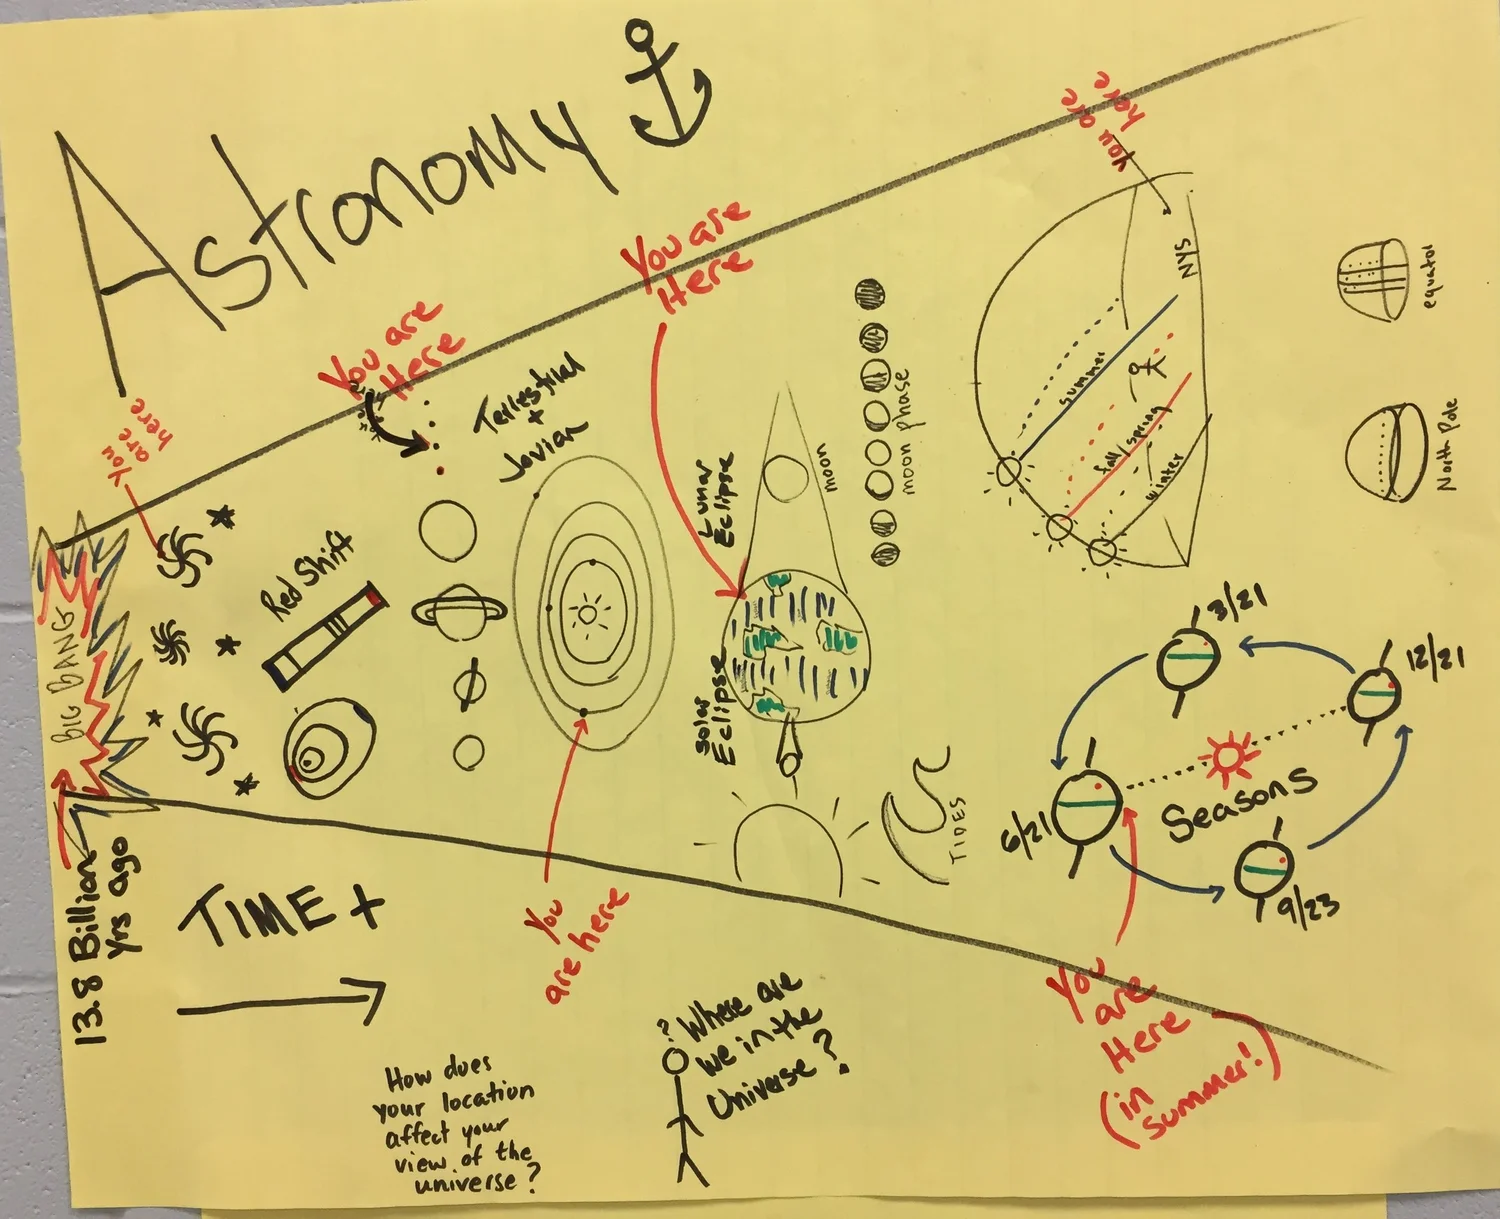 Astronomy
You are
here
You are
Here
You are
Here
You are
here
Terrestrial
+
Jovian
Red Shift
BIG BANG
13.8 Billion
yrs ago
TIME +
Lunar
Eclipse
Solar
Eclipse
moon
moon phase
TIDES
NYS
summer
fall/spring
winter
equator
North Pole
3/21
12/21
6/21
9/23
Seasons
You
are here
You
are
Here
(in
summer!)
?
Where are
we in the
Universe?
How does
your location
affect your
view of the
universe?